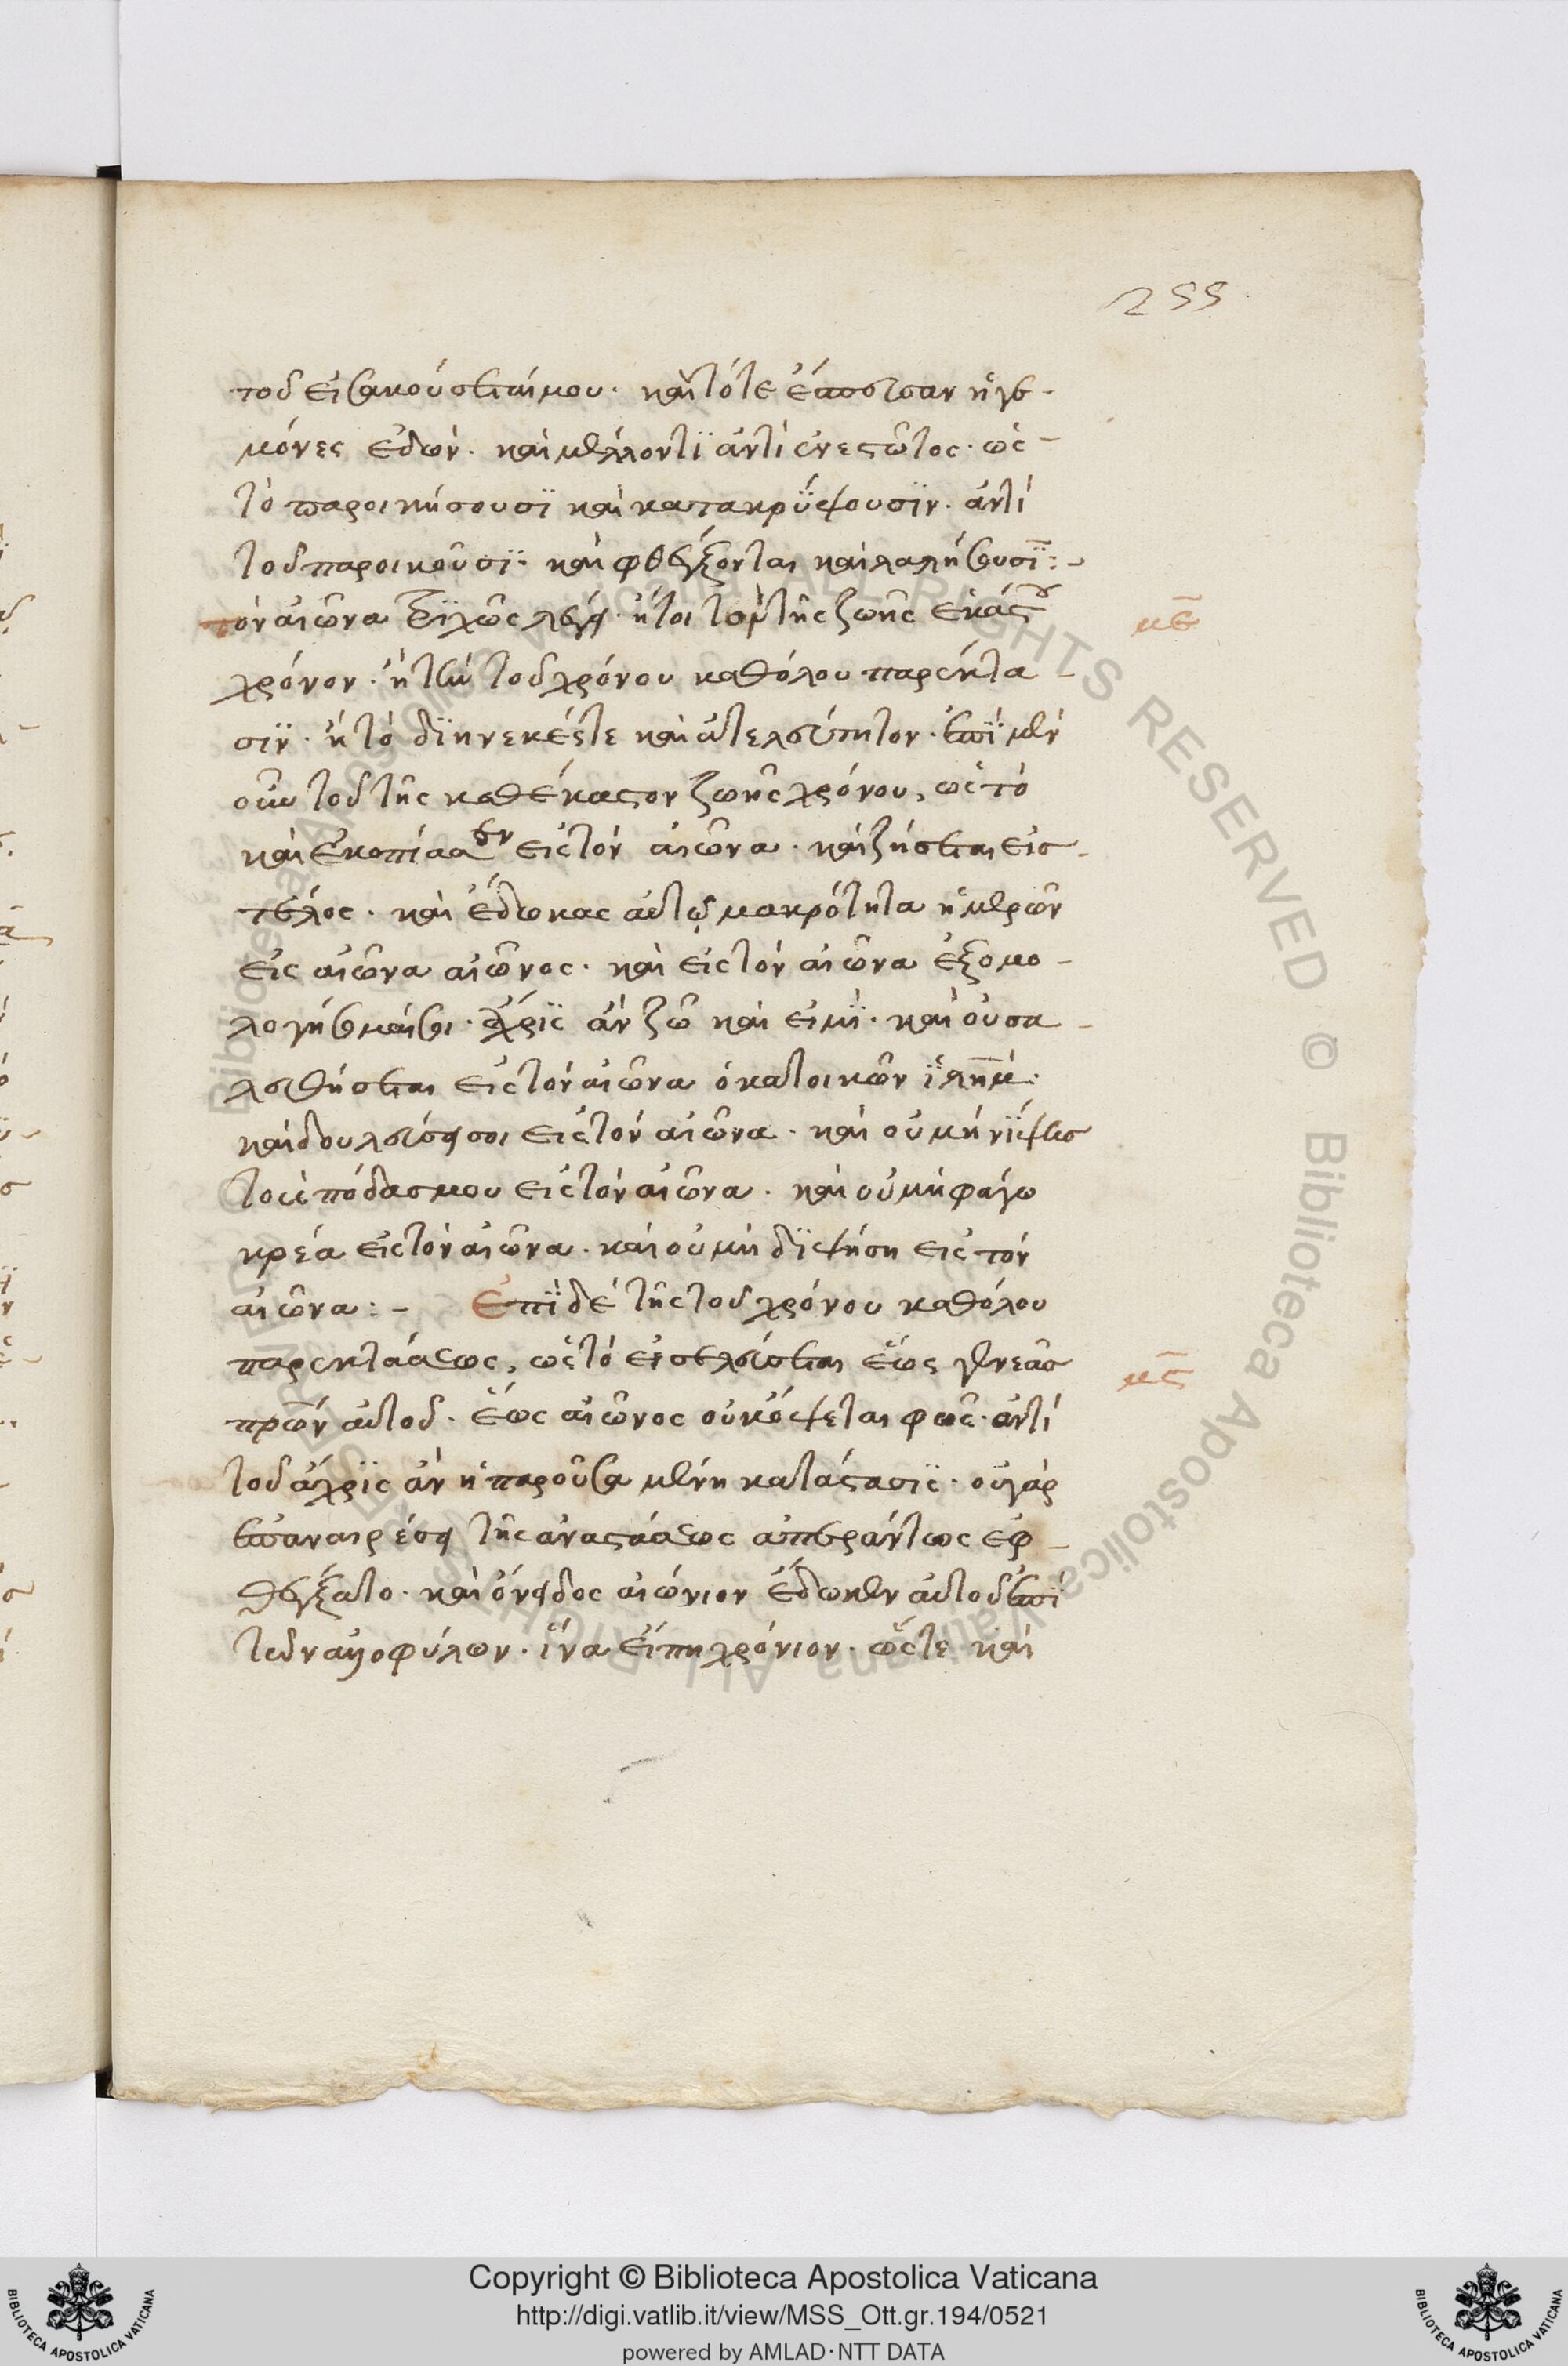 255
τοῦ εἰσακούσεταί μου. καὶ τότε ἔσπευσαν ἡγε-
μόνες ἐδώμ. καὶ μέλλοντϊ ἀντὶ ἐνεστῶτος. ὡς
τὸ παροικήσουσϊ καὶ κατακρύψουσϊν. ἀντὶ
τοῦ παροικοῦσϊ. καὶ φθέγξονται καὶ λαλήσουσϊ:-
τὸν αἰῶνα τρϊχῶς λέγει. ἤτοι τὸν τῆς ζωῆς ἑκάστου
με
χρόνον. ἢ τὴν τοῦ χρόνου καθόλου παρέκτα-
σϊν. ἢ τὸ δϊηνεκές τε καὶ ἀτελεύτητον. ἐπὶ μὲν
οὖν τοῦ τῆς καθέκαστον ζωῆς χρόνου, ὡς τὸ
καὶ ἐκοπίασεν εἰς τὸν αἰῶνα. καὶ ζήσεται εἰς
τέλος. καὶ ἔδωκας αὐτῷ μακρότητα ἡμερῶν
εἰς αἰῶνα αἰῶνος. καὶ εἰς τὸν αἰῶνα ἐξομο-
λογήσομαί σοι. ἄχρϊς ἂν ζῶ καὶ εἰμϊ. καὶ οὐ σα-
λευθήσεται εἰς τὸν αἰῶνα ὁ κατοικῶν ϊλημ.
καὶ δουλεύσει σοι εἰς τὸν αἰῶνα. καὶ οὐ μὴ νίψεις
τοὺς πόδας μου εἰς τὸν αἰῶνα. καὶ οὐ μὴ φάγω
κρέα εἰς τὸν αἰῶνα. καὶ οὐ μὴ δϊψήση εἰς τὸν
αἰῶνα:- Ἐπὶ δὲ τῆς τοῦ χρόνου καθόλου
παρεκτάσεως, ὡς τὸ εἰσελεύσεται ἕως γενεᾶς
μς
πρων αὐτοῦ. ἕως αἰῶνος οὐκ ὄψεται φῶς. ἀντὶ
τοῦ ἄχρϊς ἂν ἡ παροῦσα μένη κατάστασϊς. οὐ γὰρ
ἐπ' ἀναιρέσει τῆς ἀναστάσεως ἀπεράντως ἐφ-
θέγξατο. καὶ ὄνειδος αἰώνιον ἔδωκεν αὐτοῦ ἐπὶ
τῶν ἀλλοφύλων. ἵνα εἴπη χρόνιον. ὥστε καὶ
Copyright © Biblioteca Apostolica Vaticana
http://digi.vatlib.it/view/MSS_Ott.gr.194/0521
powered by AMLAD·NTT DATA